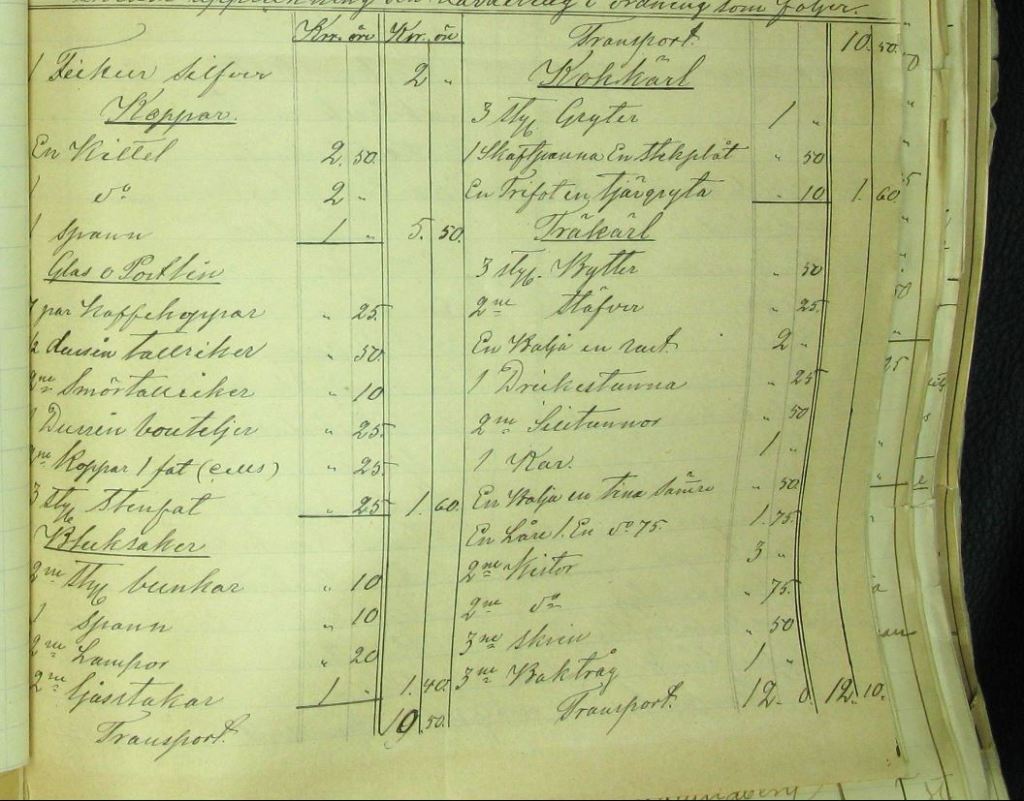 uppteckning och värdering i ordning som följer.
Kr. öre Kr. öre
1 Fickur silfver 2 "
Koppar.
En Kittel 2. 50.
1 do 2 "
1 Spann 1 " 5. 50.
Glas o Postlin
par Kaffekoppar " 25.
1/2 dussin tallriker " 50.
2ne Smörtallriker " 10
1 Dussin bouteljer " 25.
2ne Koppar 1 fat " 25
3 sty. Stenfat " 25 1. 60.
Bleksaker
2ne sty bunkar " 10
1 Spann " 10
2ne Lampor " 20
2ne ljusstakar 1 " 1. 40.
Transport. 10. 50.
Transport. 10. 50.
Kokkärl
3 sty. Gryter 1 "
1 Skaftpanna En stekplåt " 50
En Trefot en tjärgryta " 10 1. 60.
Träkärl
3 sty. Bytter " 50
2ne Stäfver " 25.
En Balja en 2 "
1 Drickestunna " 25
2ne Silitunnor " 50
1 Kar. 1 "
En Balja en tina Sämre " 50.
En Låre 1. En do 75. 1. 75.
2ne Kistor 3 "
2ne do " 75.
3ne skrin " 50
3ne Baktråg 1 "
Transport. 12. 0. 12. 10.